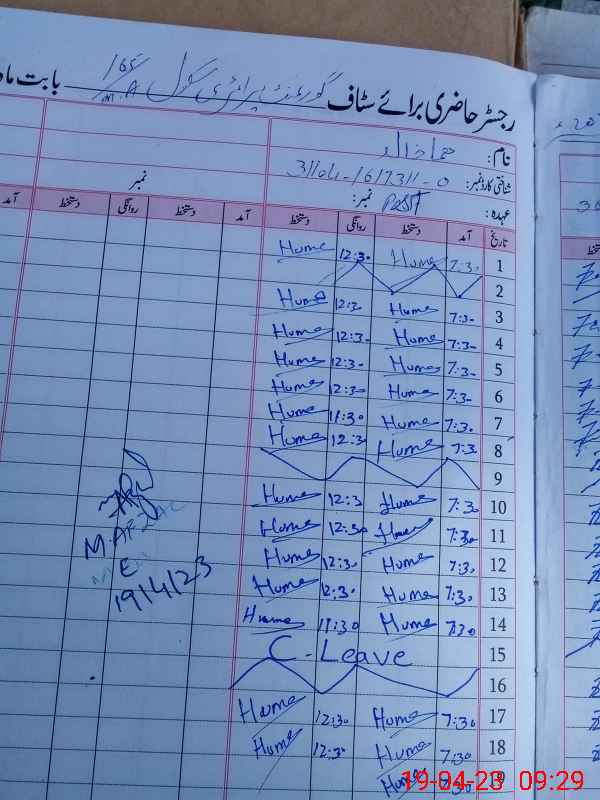 رجسٹر حاضری برائے سٹاف گورنمنٹ پرائمری سکول 168/M.A بابت ماہ
نام: ہما خالد
شناختی کارڈ نمبر:
عہدہ: PBST نمبر: نمبر
تاریخ آمد دستخط روانگی دستخط آمد دستخط روانگی دستخط آمد
1 7:30 Huma 12:30 Huma
2
3 7:30 Huma 12:30 Huma
4 7:30 Huma 12:30 Huma
5 7:30 Huma 12:30 Huma
6 7:30 Huma 12:30 Huma
7 7:30 Huma 11:30 Huma
8 7:30 Huma 12:30 Huma
9
10 7:30 Huma 12:30 Huma
11 7:30 Huma 12:30 Huma
12 7:30 Huma 12:30 Huma
13 7:30 Huma 12:30 Huma
14 7:30 Huma 11:30 Huma
15 C-Leave
16
17 7:30 Huma 12:30 Huma
18 7:30 Huma 12:30 Huma
Huma 7:30
19/4/23
19-04-23 09:29